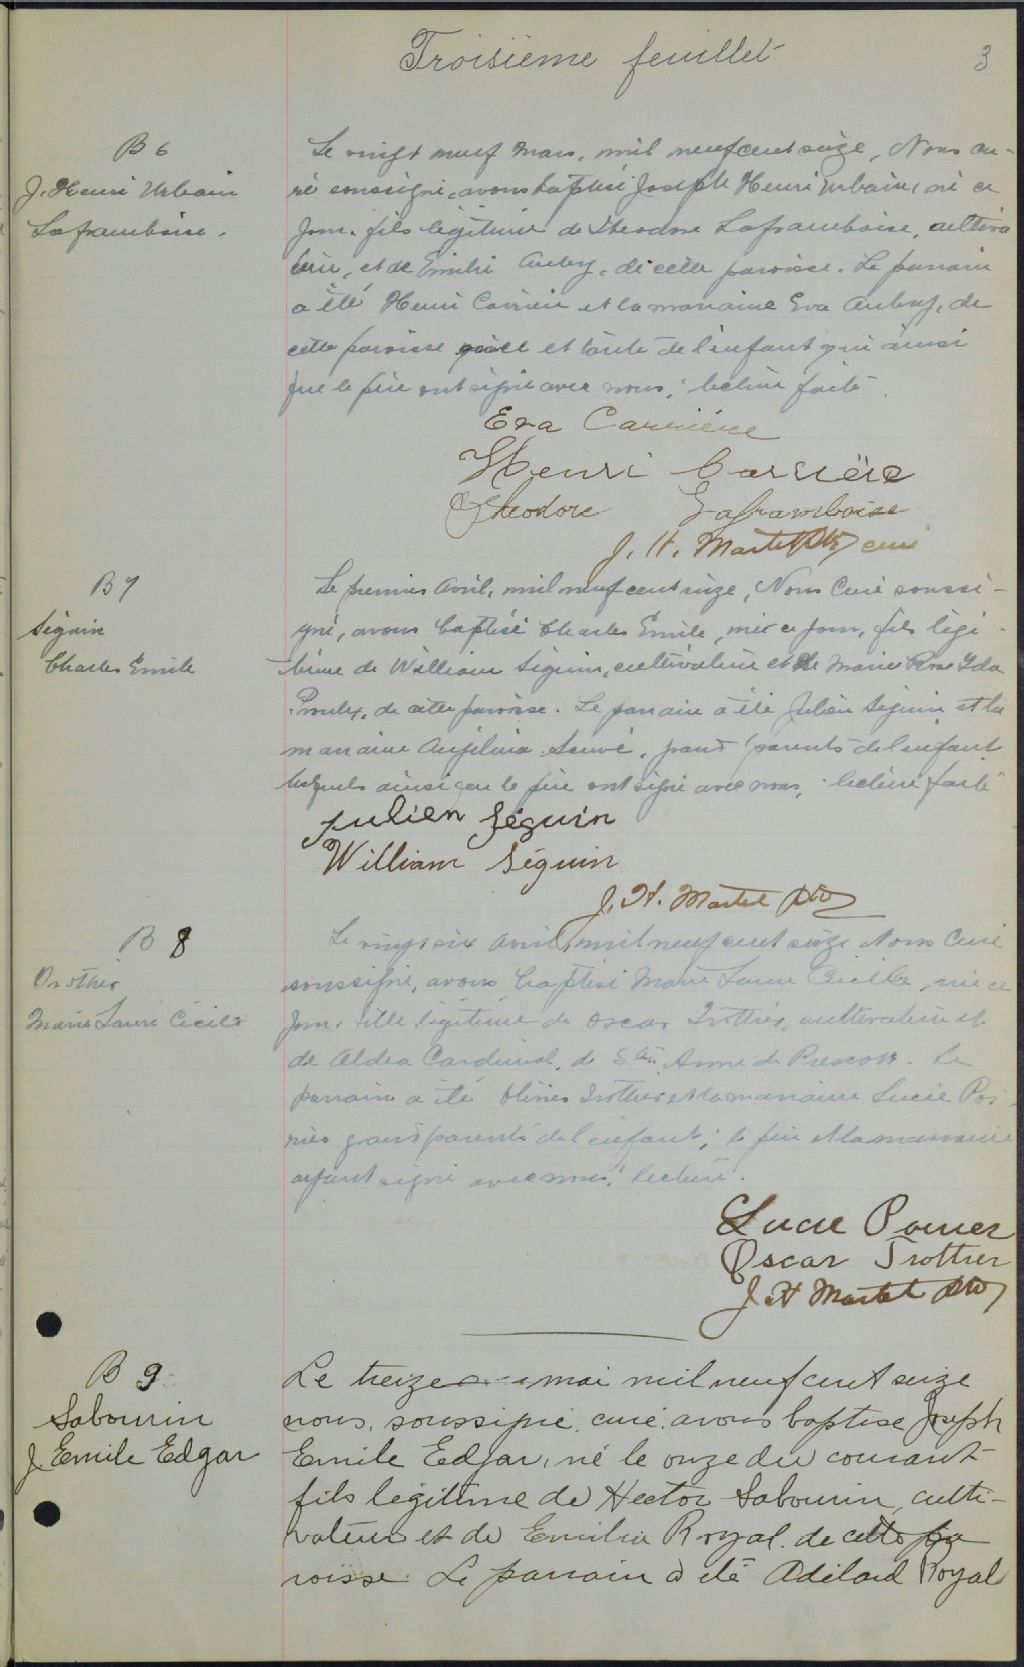 Troisième feuillet 3
B 6
J. Henri Urbain
Laframboise.
Le vingt neuf Mars, mil neuf cent seize, Nous cu-
ré soussigné, avons baptisé Joseph Henri Urbain, né ce
jour, fils légitime de Theodore Laframboise, cultiva
teur, et de Emilie Aubry, de cette paroisse. Le parrain
a été Henri Carrière et la marraine Eva Aubry, de
cette paroisse oncle et tante de l'enfant qui ainsi
que le père ont signé avec nous; lecture faite.
Eva Carrière
Henri Carrière
Theodore Laframboise
J. H. Martel Ptre curé
B 7
Séguin
Charles Emile
Le premier Avril, mil neuf cent seize, Nous Curé soussi-
gné, avons baptisé Charles Emile, né ce jour, fils légi-
time de William Séguin, cultivateur et de Marie Rose Ida
Proulx, de cette paroisse. Le parrain a été Julien Séguin et la
marraine Angélina Sauvé, grand'parents de l'enfant
lesquels ainsi que le père ont signé avec nous, lecture faite
Julien Séguin
William Séguin
J. H. Martel Ptre
B 8
Trottier
Marie Laure Cécile
Le vingt six Avril, mil neuf cent seize Nous Curé
soussigné, avons baptisé Marie Laure Cécile, née ce
jour, fille légitime de Oscar Trottier, cultivateur et
de Aldea Cardinal, de Ste Anne de Prescott. Le
parrain a été Trottier et la marraine Lucie Poi
rier grand parents de l'enfant; le père et la marraine
ayant signé avec nous; lecture.
Lucie Poirier
Oscar Trottier
J. H Martel Ptre
B 9
Sabourin
J Emile Edgar
Le treize mai mil neuf cent seize
nous, soussigné, curé, avons baptisé Joseph
Emile Edgar, né le onze du courant
fils légitime de Hector Sabourin, culti-
vateur et de Emilia Royal, de cette pa
roisse. Le parrain a été Adélard Royal